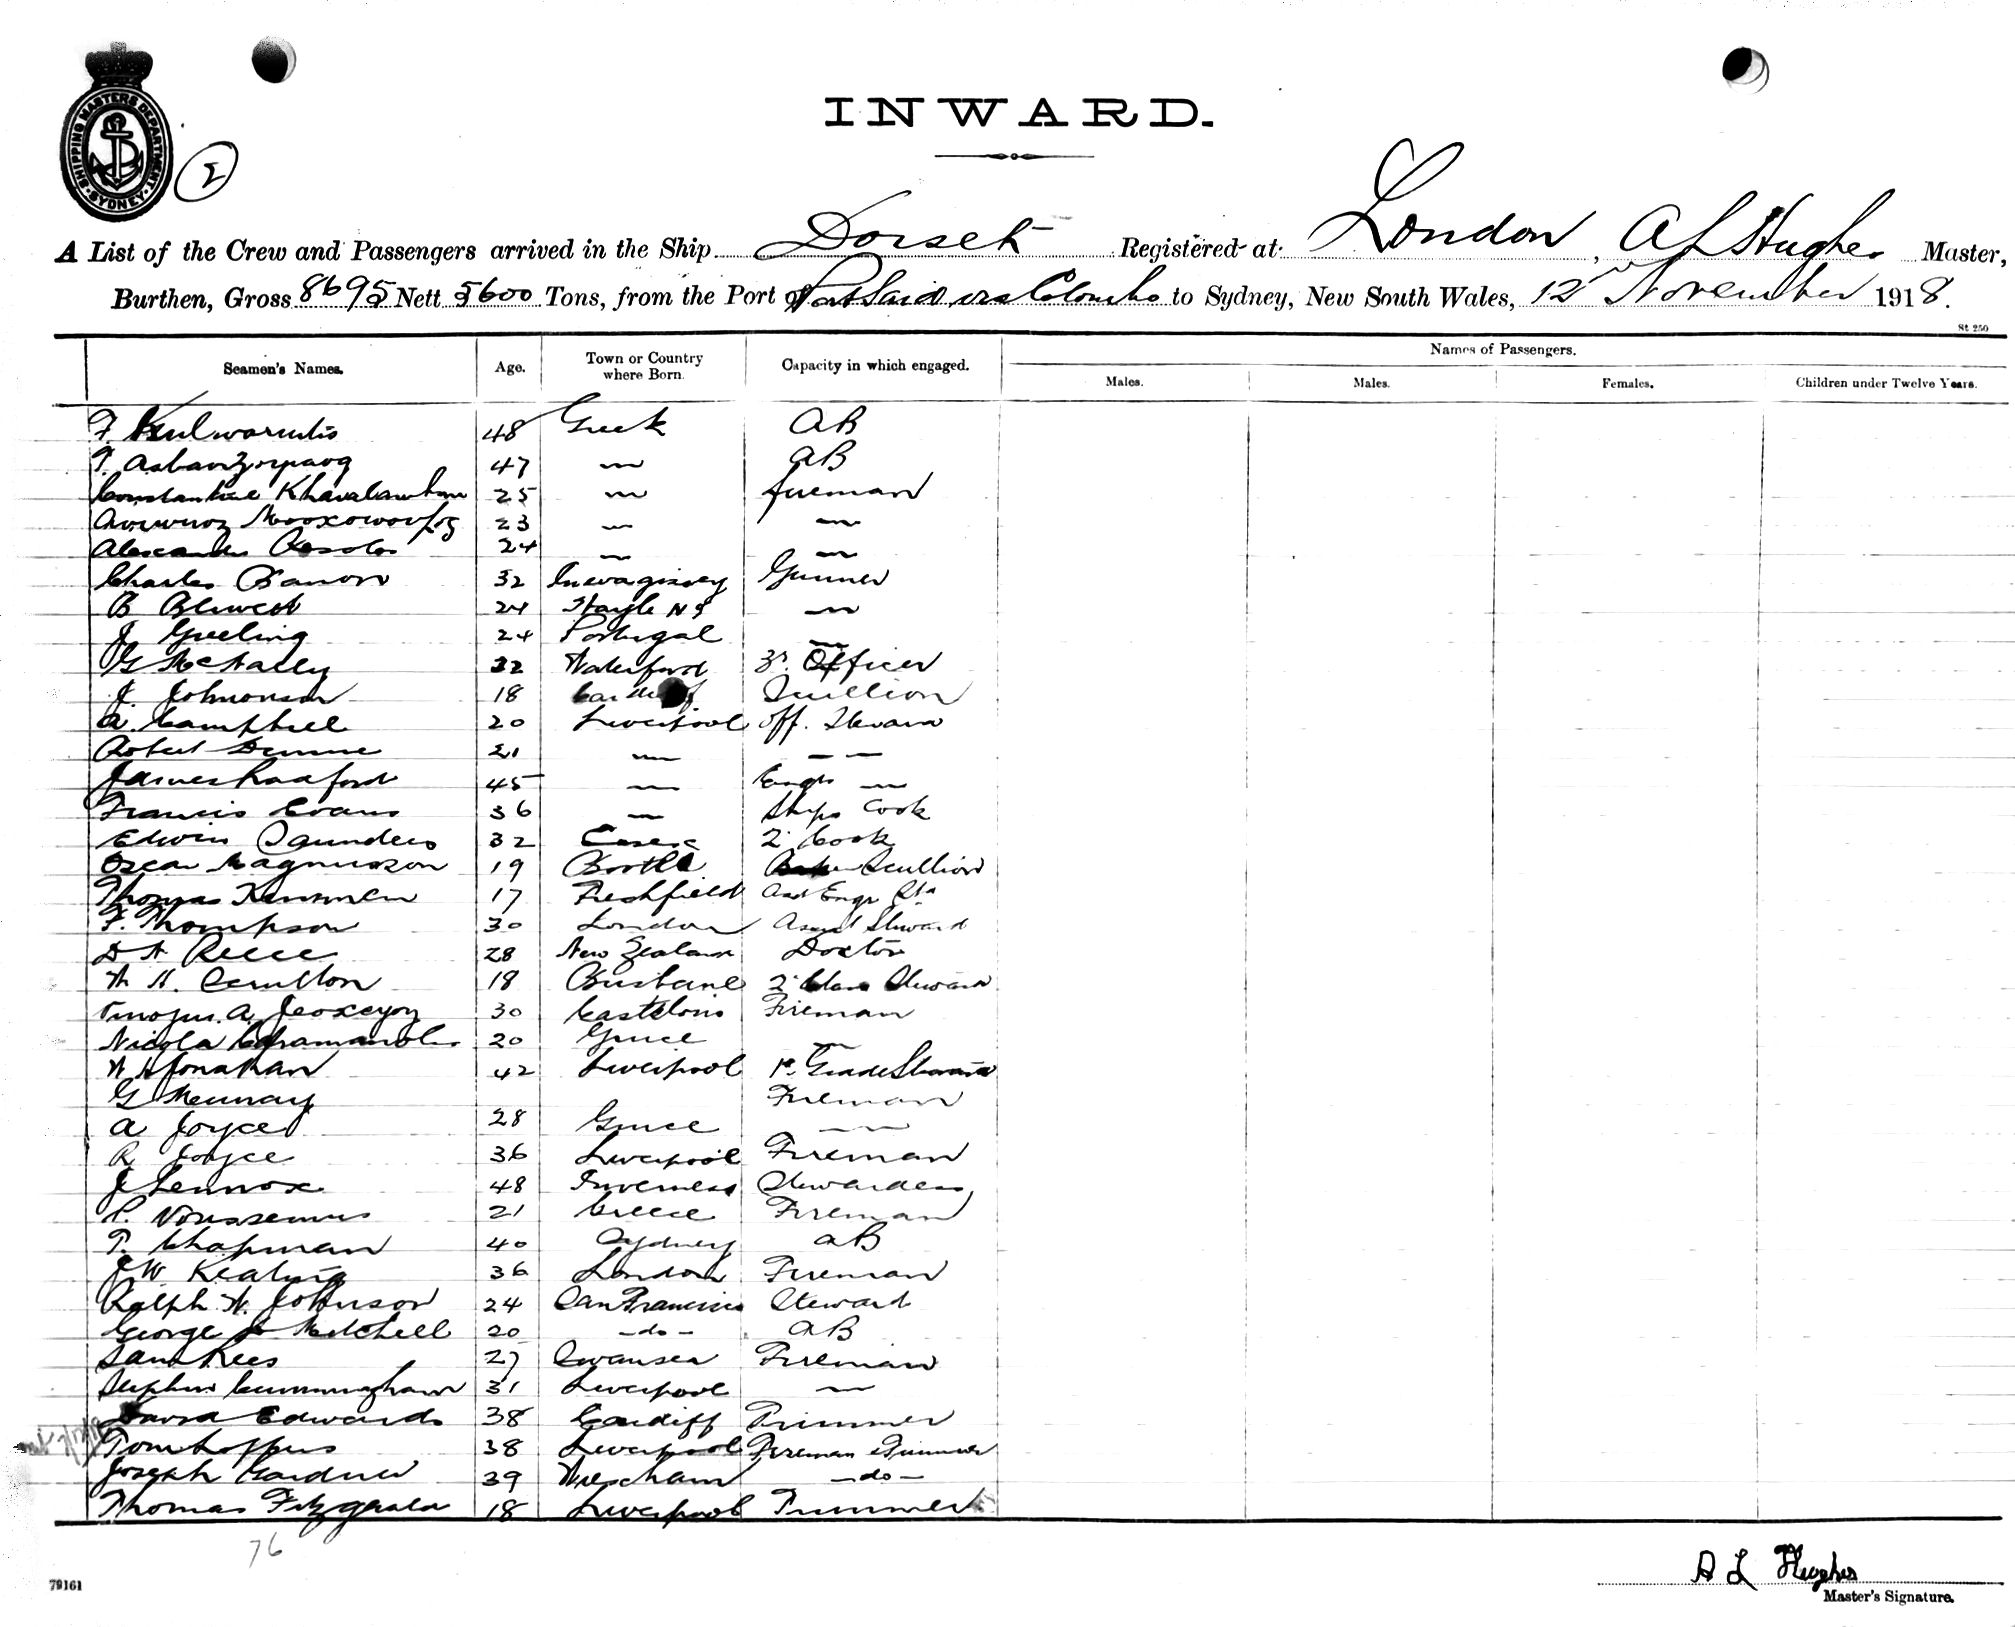 SHIPPING MASTERS DEPARTMENT · SYDNEY ·
2
INWARD.
A List of the Crew and Passengers arrived in the Ship Dorset Registered at London, A L Hughes Master,
Burthen, Gross 8695 Nett 5600 Tons, from the Port of Port Said via Colombo to Sydney, New South Wales, 12 November 1918.
St 250
Seamen's Names. Age. Town or Country where Born. Capacity in which engaged. Names of Passengers.
Males. Males. Females. Children under Twelve Years.
F. 48 Greek AB
47 〃 AB
Constantine 25 〃 fireman
23 〃 〃
Alexander 24 〃 〃
Charles 32 Gunner
B Blewett 24 〃
J 24 Portugal 〃
G McNally 32 Waterford 3r. Officer
J. Johnonson 18 Cardiff Scullion
A. Campbell 20 Liverpool Off. Steward
Robert 21 〃 〃 〃
James Radford 45 〃 Engrs 〃
Francis Evans 36 〃 Ships Cook
Edwin Saunders 32 Essex 2 Cook
Oscar Magnusson 19 Bootle Scullion
Thomas 17 Freshfield Asst Engr Std
F. Thompson 30 London Asst Steward
D A Reece 28 New Zealand Doctor
W. H. 18 Brisbane 2 Class Steward
30 Fireman
Nicola 20 Greece 〃
W H Jonathan 42 Liverpool 1st Grade Steward
G Fireman
A Joyce 28 Greece 〃
R Joyce 36 Liverpool Fireman
J Lennox 48 Inverness Stewardess
21 Greece Fireman
T. Chapman 40 Sydney AB
J W Keating 36 London Fireman
Ralph W. Johnson 24 San Francisco Steward
George J Mitchell 20 -do- AB
Sam Rees 27 Swansea Fireman
Stephen Cunningham 31 Liverpool 〃
David Edwards 38 Cardiff Trimmer
Tom 38 Liverpool Fireman Trimmer
Joseph Gardner 39 Wrexham -do-
Thomas Fitzgerald 18 Liverpool Trimmer
76
79161
A L Hughes
Master's Signature.